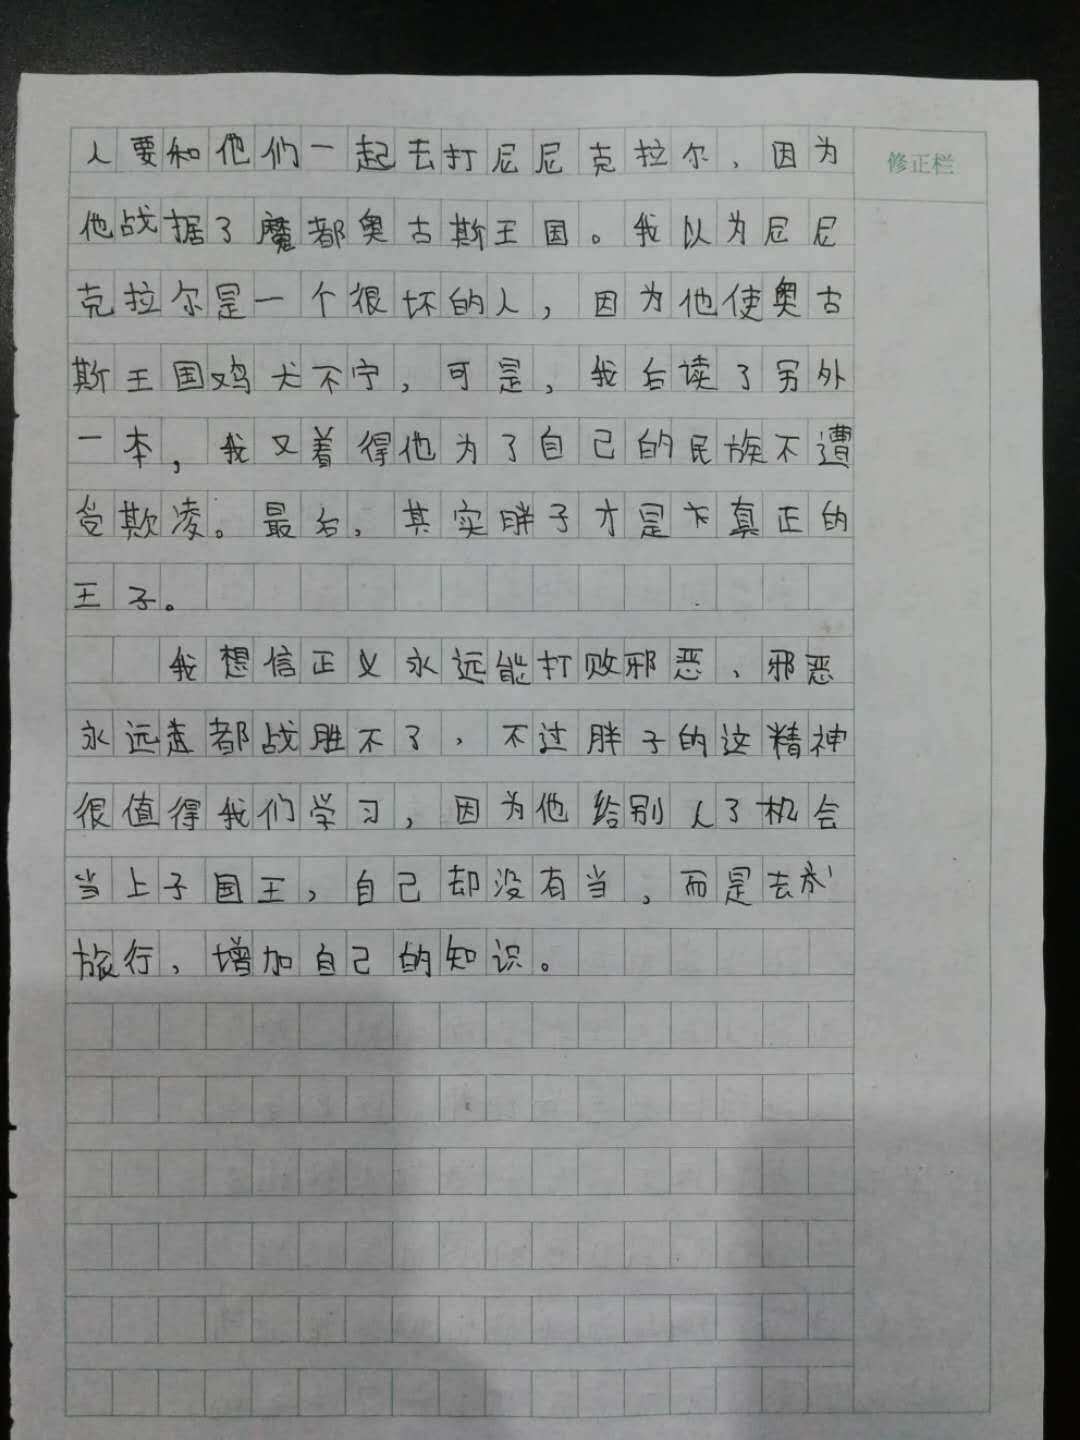 人要和他们一起去打尼尼克拉尔，因为
修正栏
他战据了魔都奥古斯王国。我以为尼尼
克拉尔是一个很坏的人，因为他使奥古
斯王国鸡犬不宁，可是，我后读了另外
一本，我又着得他为了自己的民族不遭
受欺凌。最后，其实胖子才是真正的
王子。
我想信正义永远能打败邪恶，邪恶
永远走都战胜不了，不过胖子的这精神
很值得我们学习，因为他给别人了机会
当上子国王，自己却没有当，而是去
旅行，增加自己的知识。